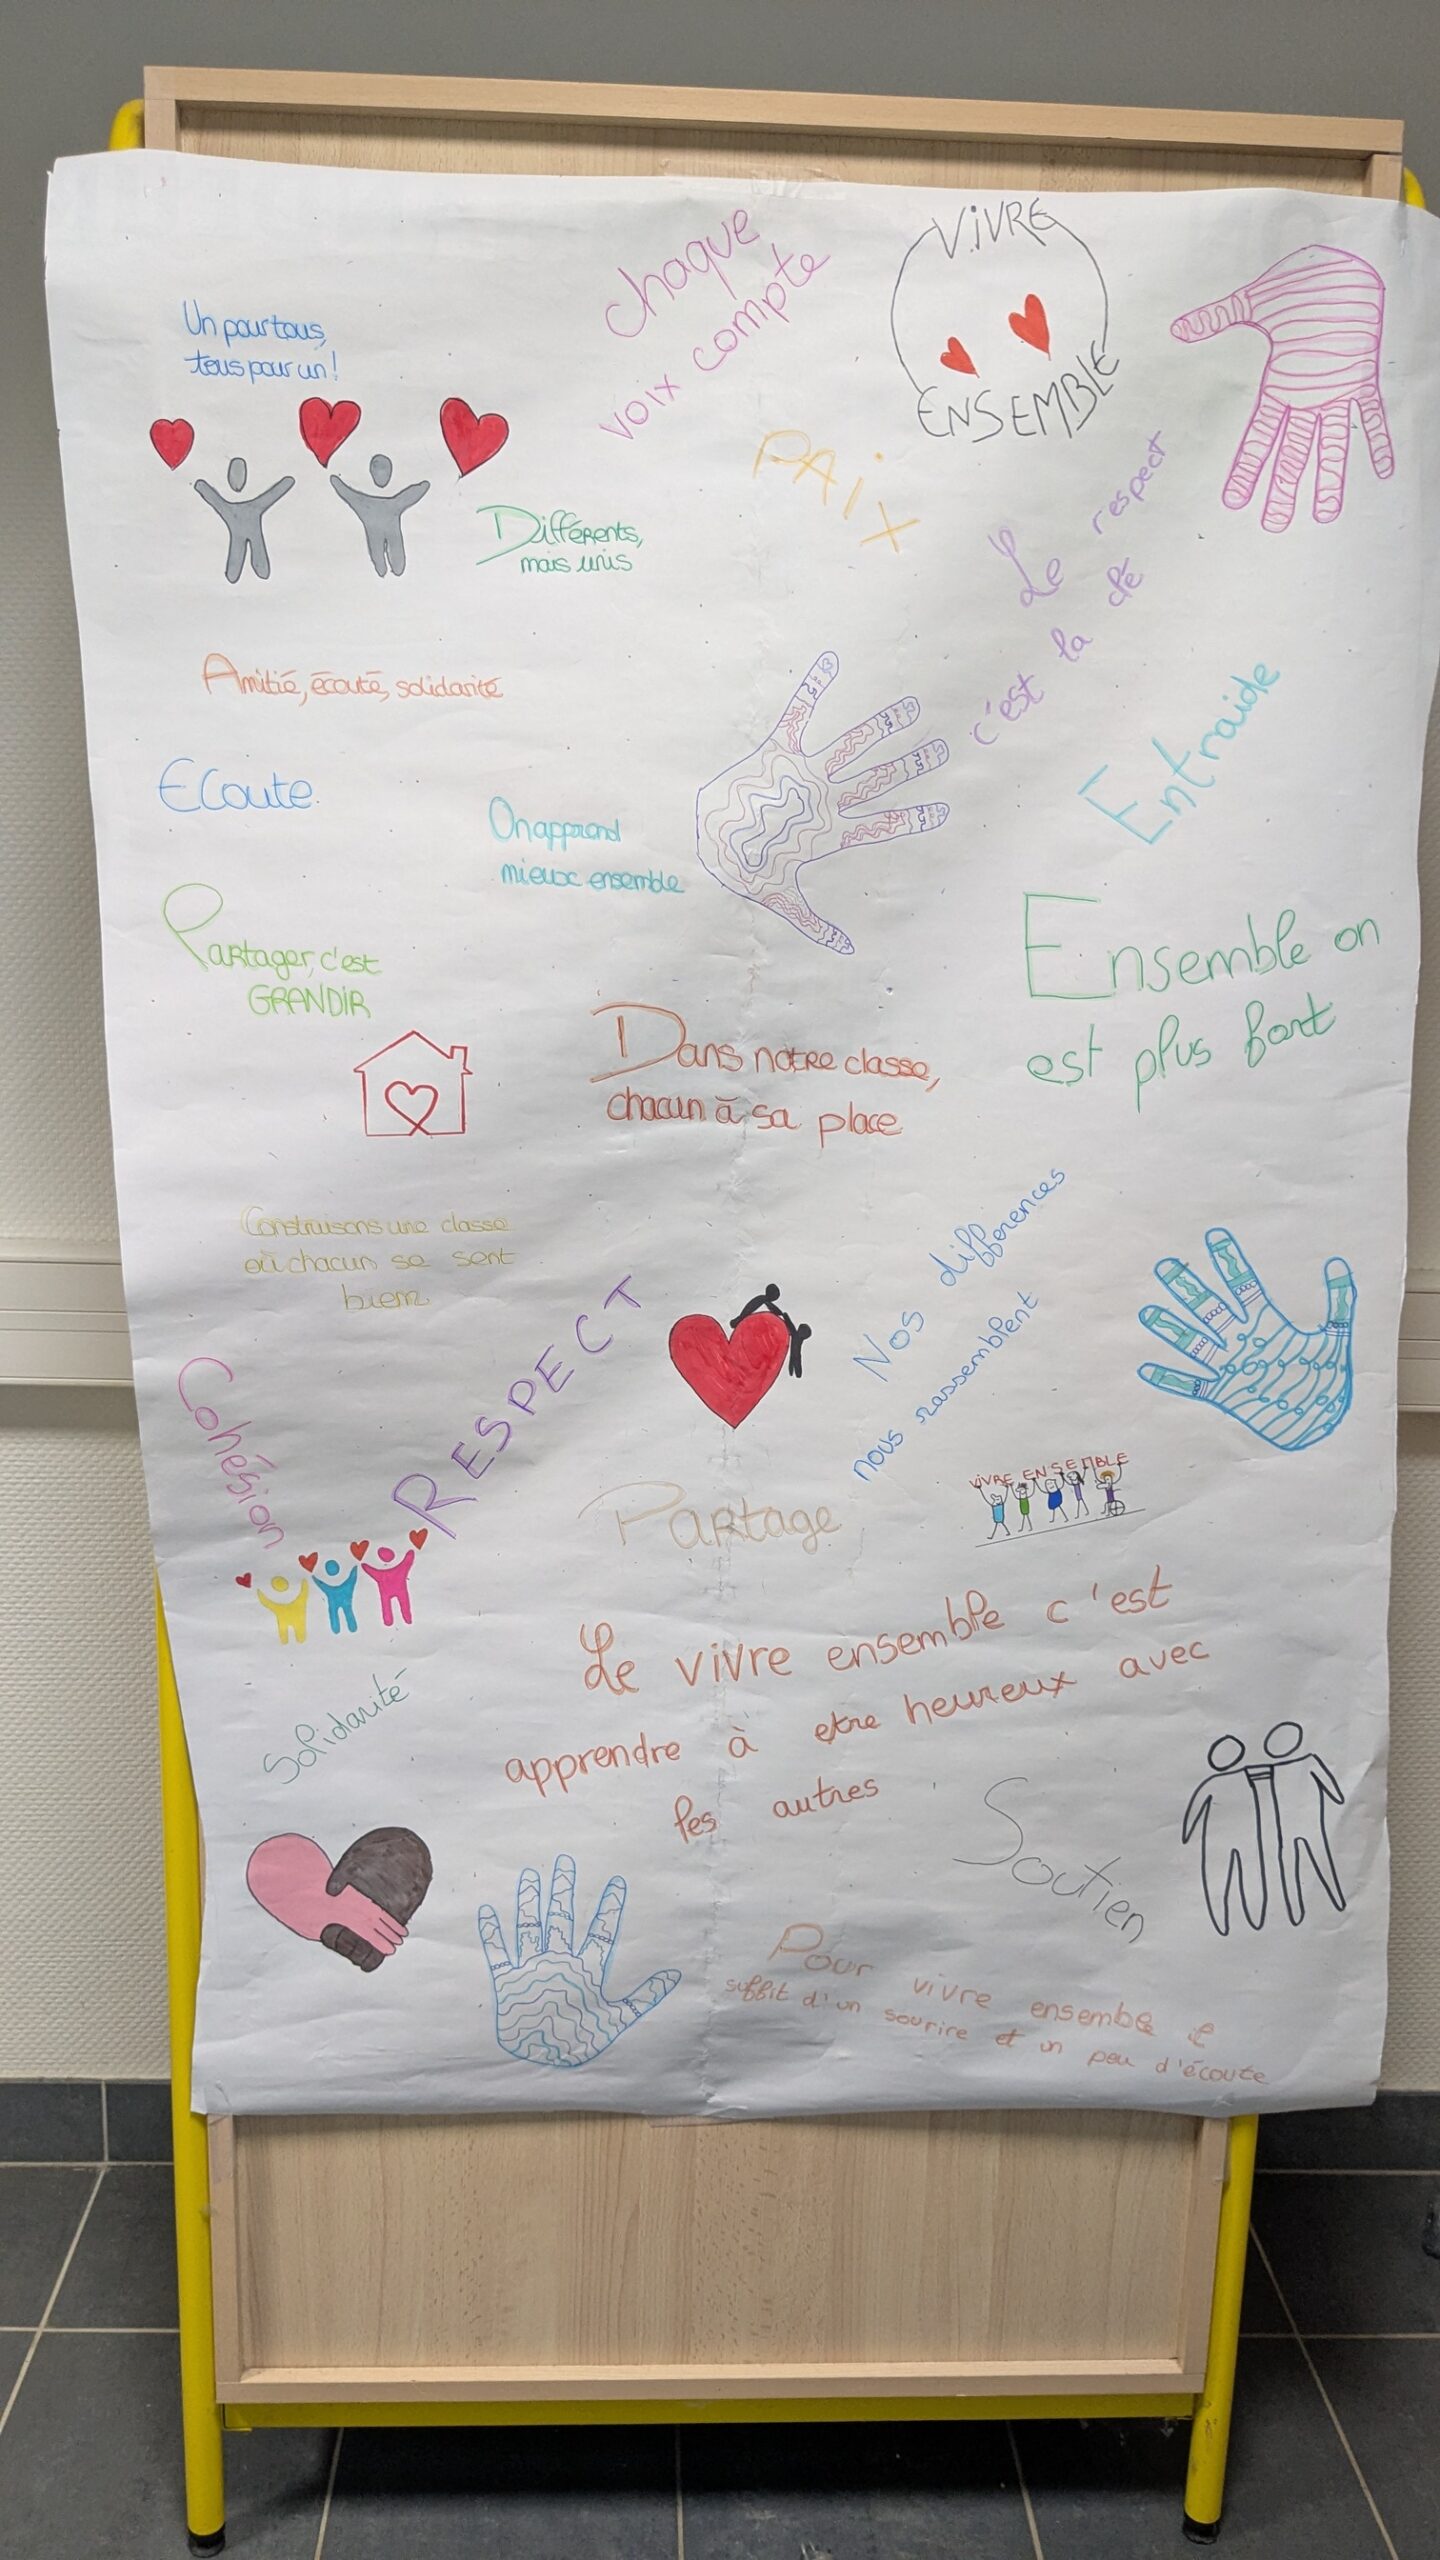 Chaque
voix compte
VIVRE
ENSEMBLE
Un pour tous,
tous pour un!
PAIX
Différents,
mais unis
Le respect
c'est la clé
Amitié, écouté, solidarité
Entraide
Ecoute.
On apprend
mieux ensemble
Partager, c'est
GRANDIR
Ensemble on
est plus fort
Dans notre classe,
chacun à sa place
Construisons une classe
où chacun se sent
bien
Nos différences
nous rassemblent
RESPECT
Cohésion
VIVRE ENSEMBLE
Partage
Le vivre ensemble c'est
apprendre à etre heureux avec
les autres
Solidarité
Soutien
Pour vivre ensemble il
suffit d'un sourire et un peu d'écoute